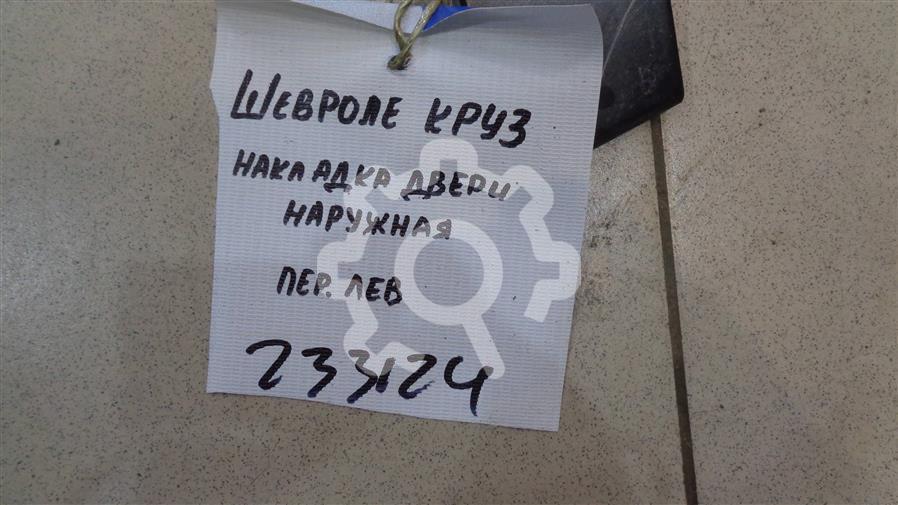 ШЕВРОЛЕ КРУЗ
НАКЛАДКА ДВЕРИ
НАРУЖНАЯ
ПЕР. ЛЕВ
233124